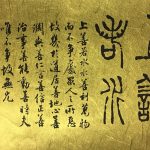 上善
若水
上善若水水善利萬物
而不爭處眾人之所惡
故幾於道居善地心善
淵與善仁言善信正善
治事善能動善時夫
唯不爭故無尤